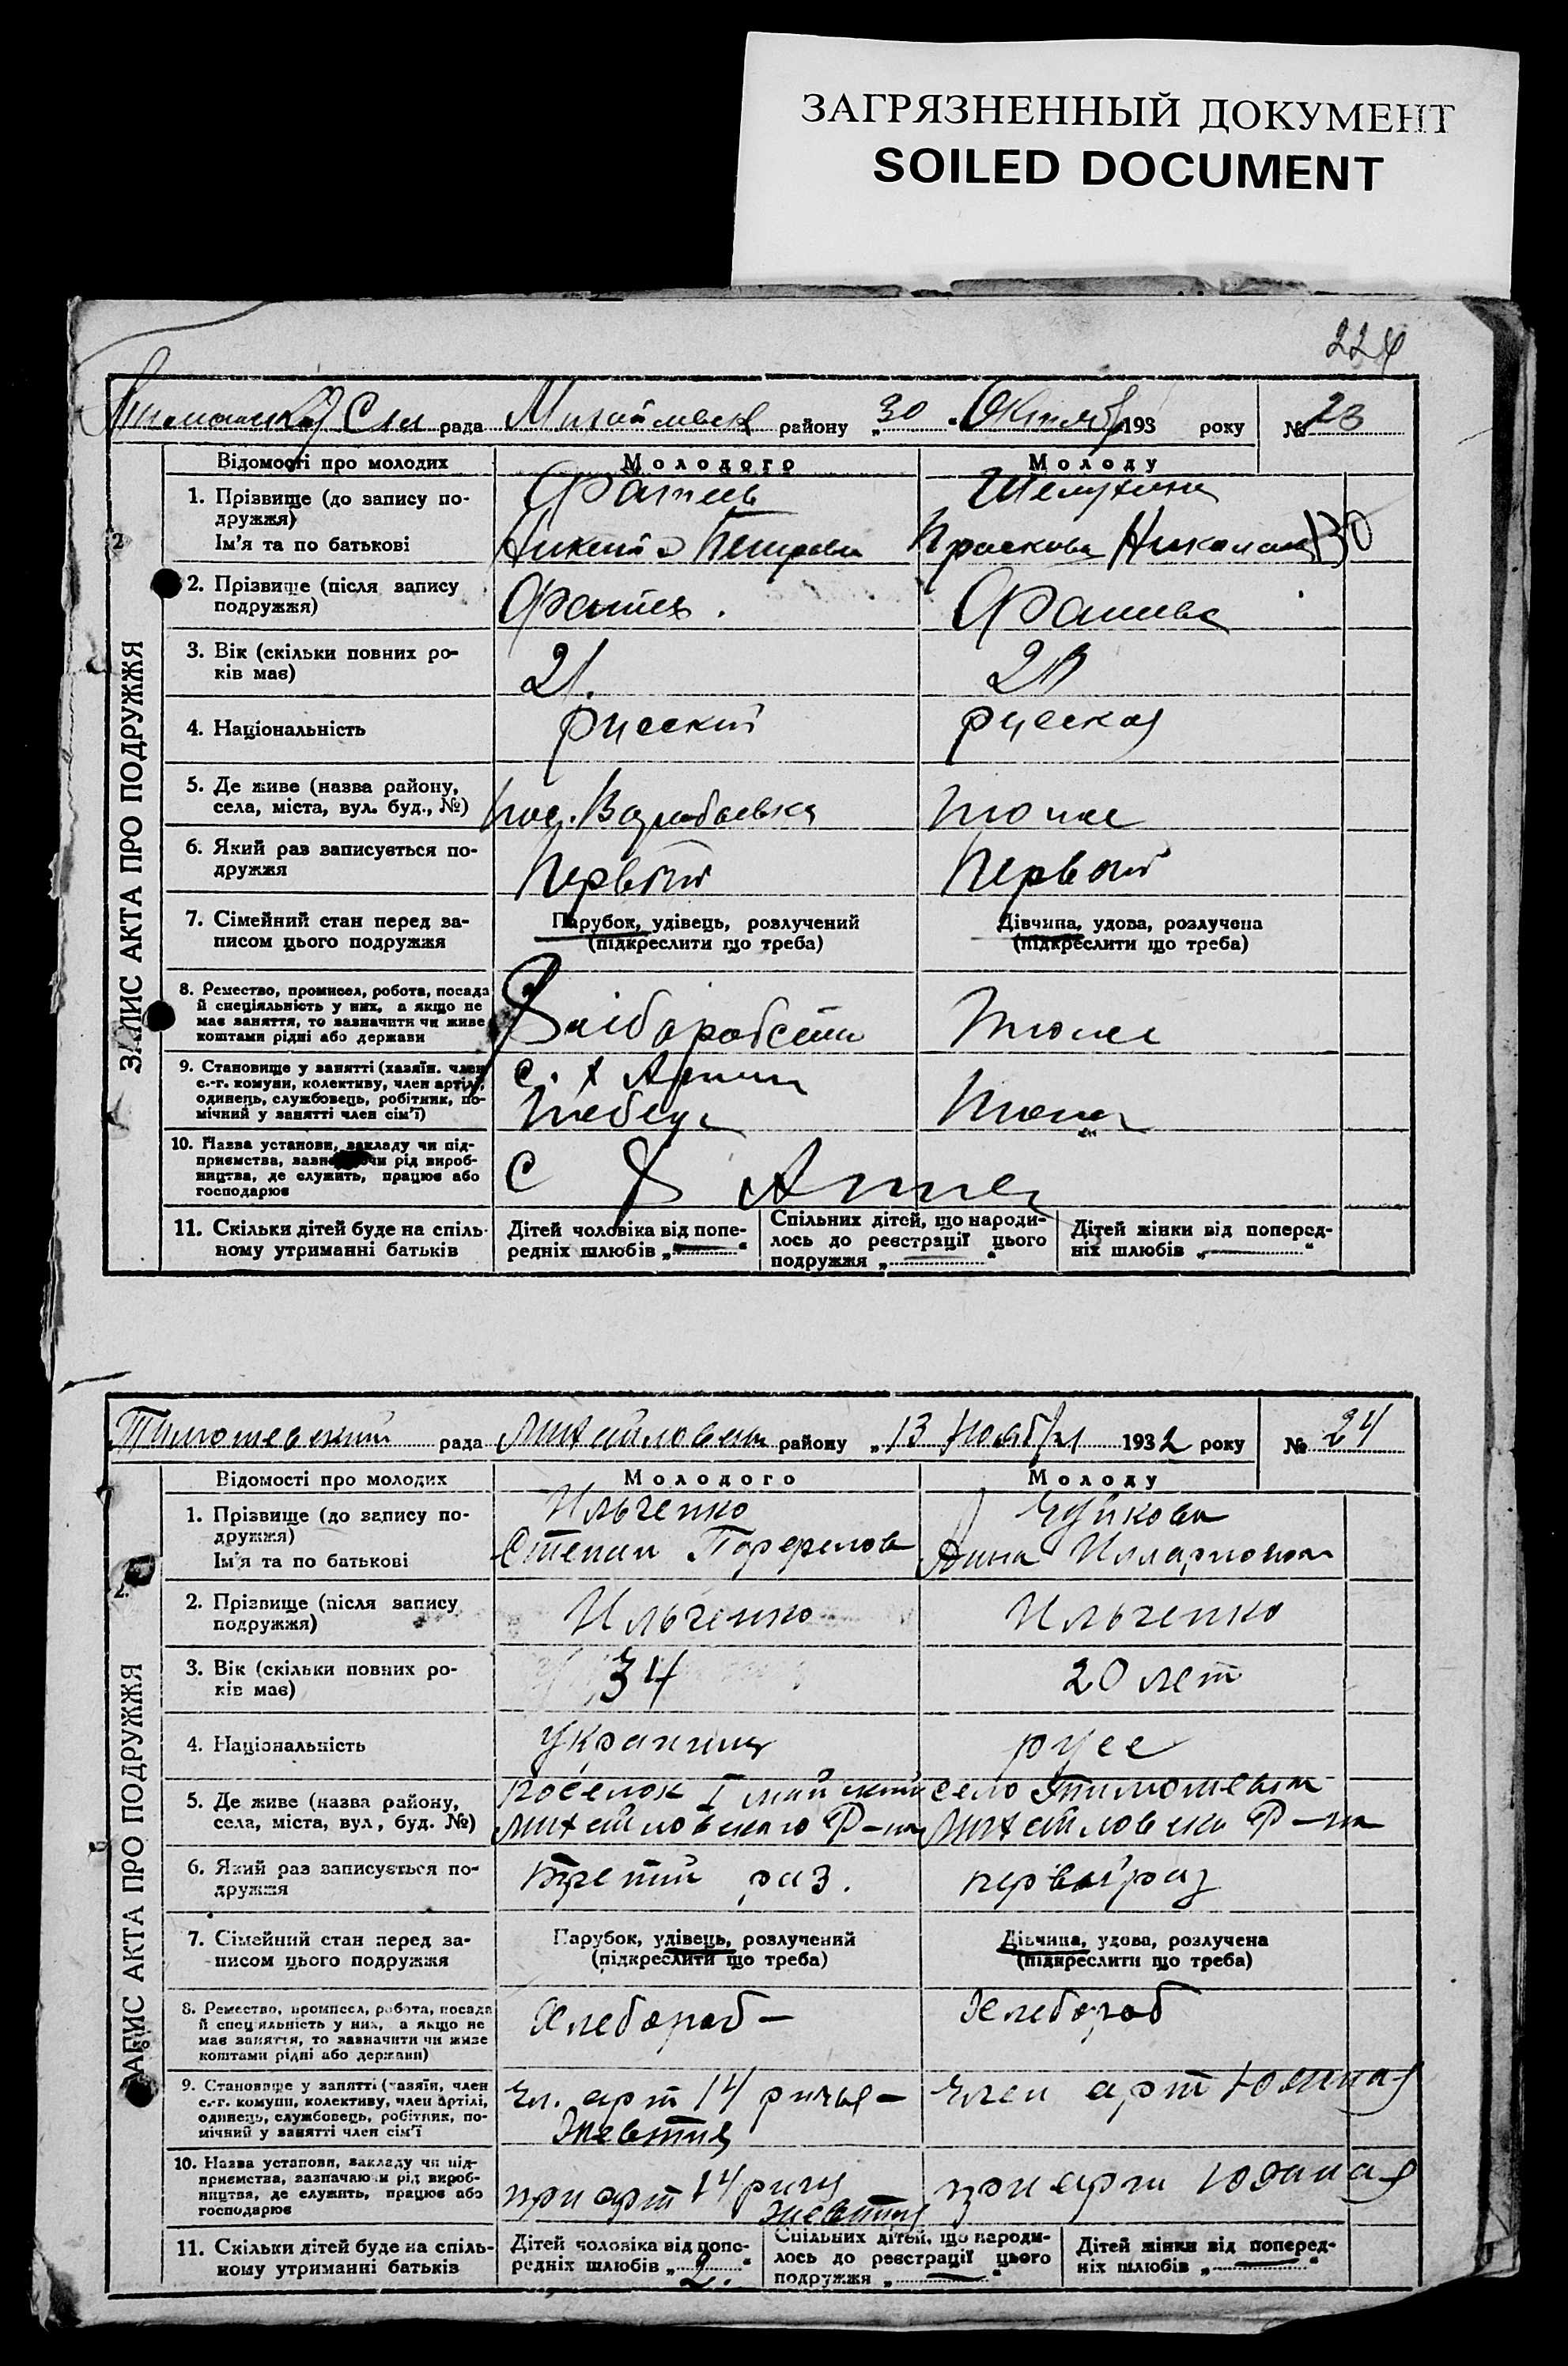 ЗАГРЯЗНЕННЫЙ ДОКУМЕНТ
SOILED DOCUMENT
224
рада района району „30 Октяб 193 року № 23
Відомості про молодих
Молодого
Молоду
1. Прізвище (до запису по-
дружжя)
Ім'я та по батькові
Никита Петров
Прасковия Николаев
2. Прізвище (після запису
подружжя)
3. Вік (скільки повних ро-
ків має)
21.
4. Національність
русский
русская
5. Де живе (назва району,
села, міста, вул. буд., №)
пос.
тоже
6. Який раз записується по-
дружжя
первый
первый
7. Сімейний стан перед за-
писом цього подружжя
Парубок, удівець, розлучений
(підкреслити що треба)
Дівчина, удова, розлучена
(підкреслити що треба)
8. Ремество, промисел, робота, посада
й спеціяльність у них, а якщо не
має заняття, то зазначити чи живе
коштами рідні або держави
тоже
9. Становище у занятті (хазяїн. член
с.-г. комуни, колективу, член артілі,
одинець, службовець, робітник, по-
мічний у занятті член сім'ї)
с. х
10. Назва установи, закладу чи під-
приємства, зазначаючи рід вироб-
ництва, де служить, працює або
господарює
11. Скільки дітей буде на спіль-
ному утриманні батьків
Дітей чоловіка від попе-
редніх шлюбів „ “
Спільних дітей, що народи-
лось до реєстрації цього
подружжя „ “
Дітей жінки від поперед-
ніх шлюбів „ “
ЗАПИС АКТА ПРО ПОДРУЖЖЯ
рада Михайловски району „13 Ноября 1932 року № 24
Відомості про молодих
Молодого
Молоду
1. Прізвище (до запису по-
дружжя)
Ім'я та по батькові
Ильченко
Степан
Анна Илларионов
2. Прізвище (після запису
подружжя)
Ильченко
Ильченко
3. Вік (скільки повних ро-
ків має)
34
20 лет
4. Національність
украинец
русс
5. Де живе (назва району,
села, міста, вул, буд. №)
поселок I майский
Михайловского Р-на
село
Михайловски Р-на
6. Який раз записується по-
дружжя
третий раз.
первый раз
7. Сімейний стан перед за-
писом цього подружжя
Парубок, удівець, розлучений
(підкреслити що треба)
Дівчина, удова, розлучена
(підкреслити що треба)
8. Ремество, промисел, робота, посада
й спеціяльність у них, а якщо не
має заняття, то зазначити чи живе
коштами рідні або держави)
Хлебороб –
Хлебороб
9. Становище у занятті (хазяїн, член
с.-г. комуни, колективу, член артілі,
одинець, службовець, робітник, по-
мічний у занятті член сім'ї
Чл. арт 14
Член арт
10. Назва установи, закладу чи під-
приємства, зазначаючи рід вироб-
ництва, де служить, працює або
господарює
при арт 14
при арт
11. Скільки дітей буде на спіль-
ному утриманні батьків
Дітей чоловіка від попе-
редніх шлюбів „2.“
Спільних дітей, що народи-
лось до реєстрації цього
подружжя „ “
Дітей жінки від поперед-
ніх шлюбів „ “
ЗАПИС АКТА ПРО ПОДРУЖЖЯ